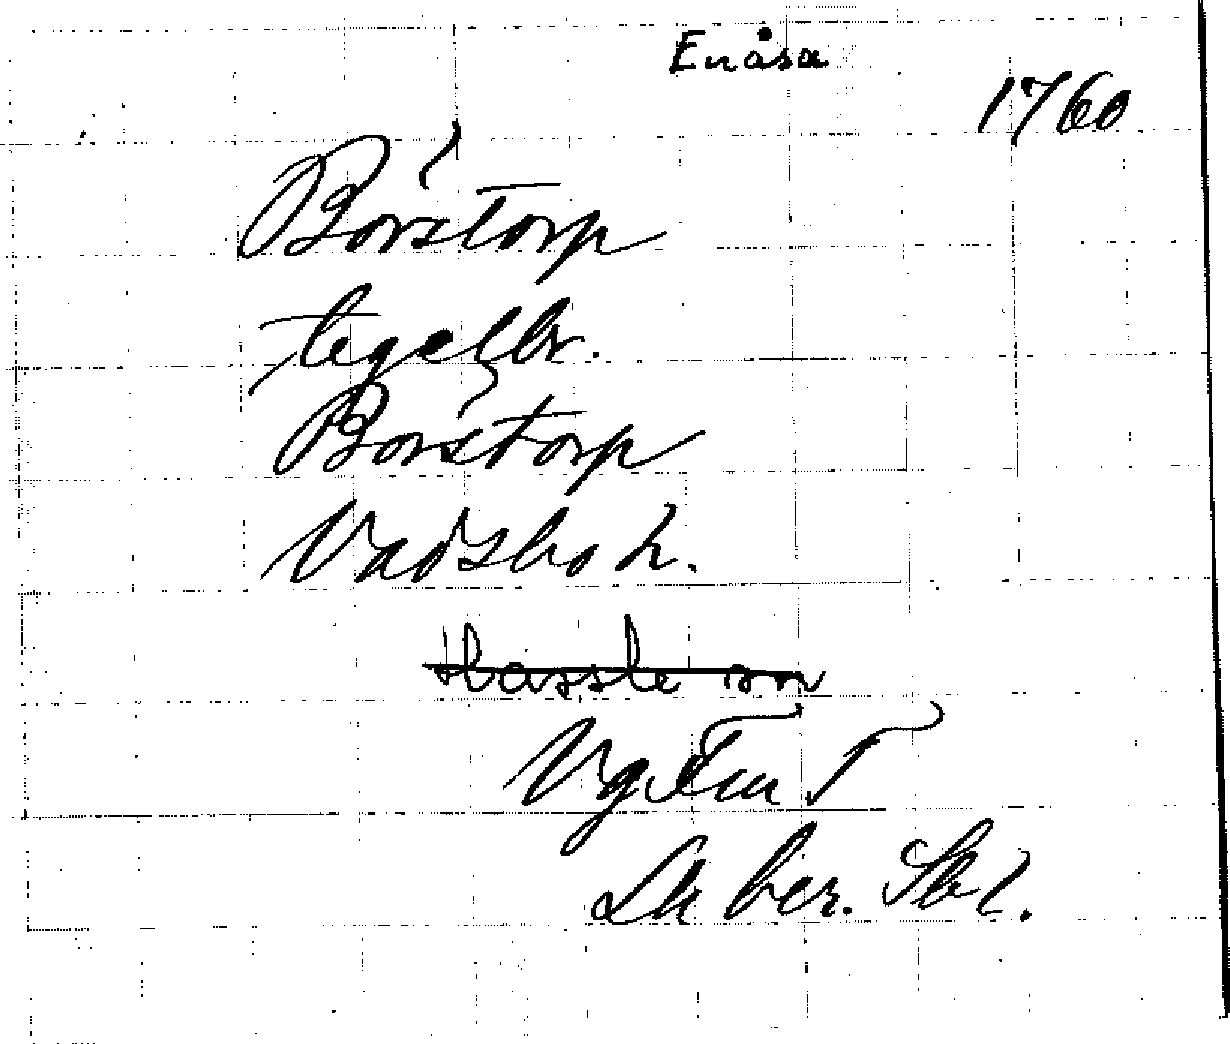 Enåsa
1760
Börstorp
tegelbr.
Börstorp
Vadsbo h.
Hassle sn
Lk ber. Sbl.